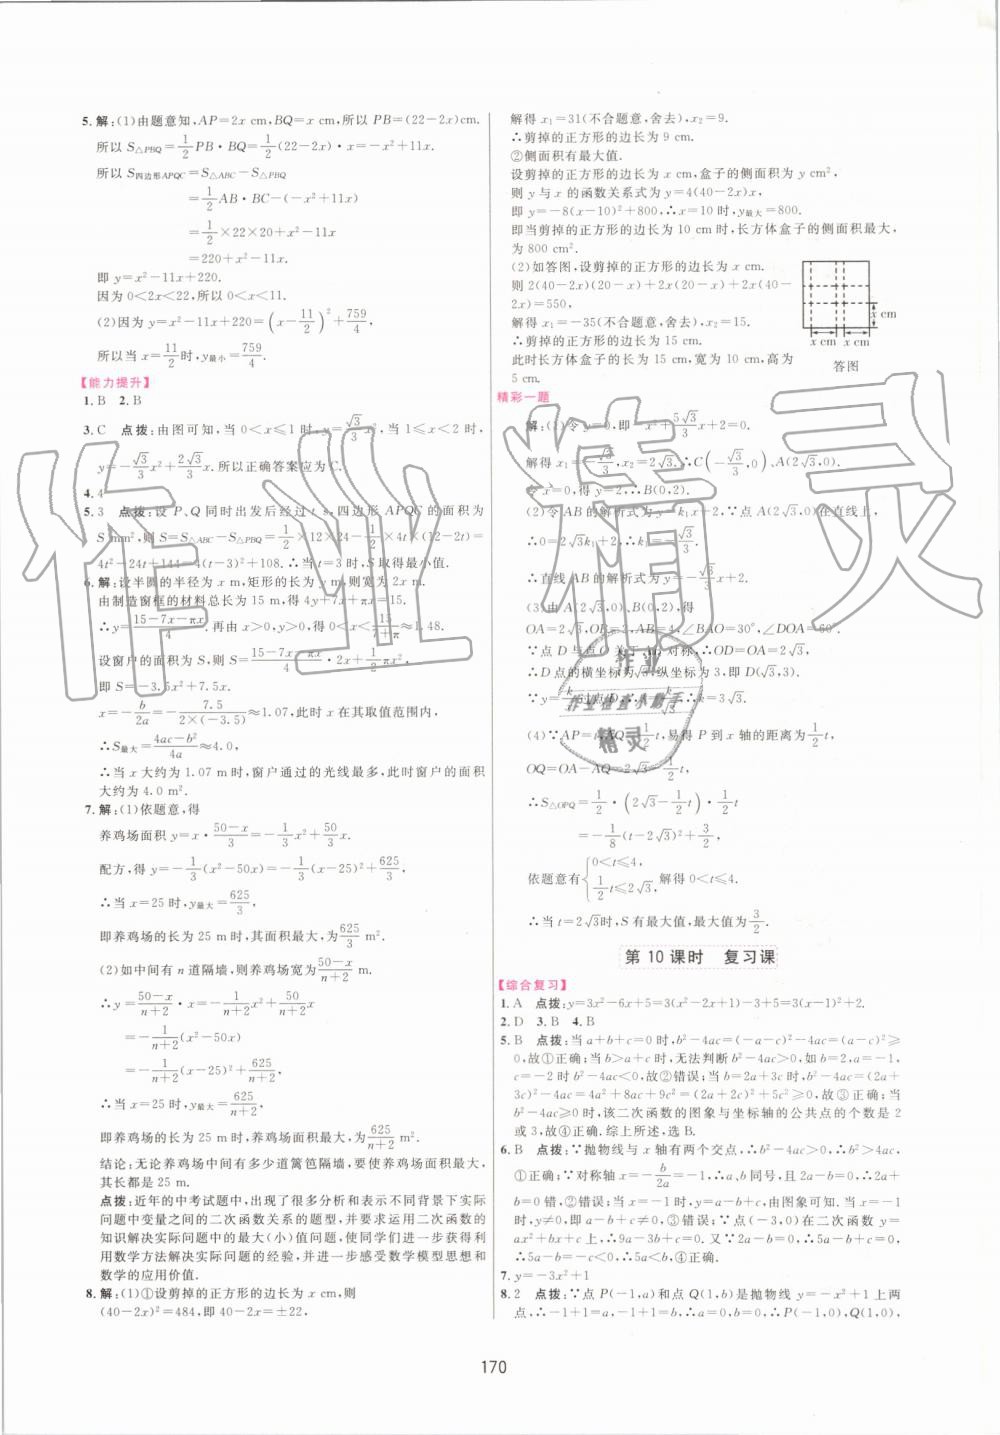 5.解:(1)由题意知,AP=2x cm,BQ=x cm,所以 PB=(22-2x)cm.
所以 S△PBQ=1/2 PB·BQ=1/2(22-2x)·x=-x²+11x.
所以 S四边形APQC=S△ABC-S△PBQ
=1/2 AB·BC-(-x²+11x)
=1/2×22×20+x²-11x
=220+x²-11x.
即 y=x²-11x+220.
因为 0<2x<22,所以 0<x<11.
(2)因为 y=x²-11x+220=(x-11/2)²+759/4,
所以当 x=11/2时,y最小=759/4.
【能力提升】
1.B 2.B
3.C 点拨:由图可知,当 0<x≤1 时,y=√3/3 x²,当 1≤x<2 时,
y=-√3/3 x²+2√3/3 x.所以正确答案应为 C.
4.4
5.3 点拨:设 P、Q 同时出发后经过 t s,四边形 APQC 的面积为
S mm²,则 S=S△ABC-S△PBQ=1/2×12×24-1/2×4t×(12-2t)=
4t²-24t+144=4(t-3)²+108.∴当 t=3时,S 取得最小值.
6.解:设半圆的半径为 x m,矩形的长为 y m,则宽为 2x m.
由制造窗框的材料总长为 15 m,得 4y+7x+πx=15.
∴y=(15-7x-πx)/4.再由 x>0,y>0,得 0<x<15/(7+π)≈1.48.
设窗户的面积为 S,则 S=(15-7x-πx)/4·2x+πx²/2.
即 S=-3.5x²+7.5x.
x=-b/2a=-7.5/(2×(-3.5))≈1.07,此时 x 在其取值范围内,
∴S最大=(4ac-b²)/4a≈4.0,
∴当 x 大约为 1.07 m 时,窗户通过的光线最多,此时窗户的面积
大约为 4.0 m².
7.解:(1)依题意,得
养鸡场面积 y=x·(50-x)/3=-1/3 x²+50/3 x.
配方,得 y=-1/3(x²-50x)=-1/3(x-25)²+625/3,
∴当 x=25 时,y最大=625/3,
即养鸡场的长为 25 m 时,其面积最大,为625/3 m².
(2)如中间有 n 道隔墙,则养鸡场宽为(50-x)/(n+2) m.
∴y=(50-x)/(n+2)·x=-1/(n+2) x²+50/(n+2) x
=-1/(n+2)(x²-50x)
=-1/(n+2)(x-25)²+625/(n+2),
∴当 x=25 时,y最大=625/(n+2),
即养鸡场的长为 25 m 时,养鸡场面积最大,为625/(n+2) m².
结论:无论养鸡场中间有多少道篱笆隔墙,要使养鸡场面积最大,
其长都是 25 m.
点拨:近年的中考试题中,出现了很多分析和表示不同背景下实际
问题中变量之间的二次函数关系的题型,并要求运用二次函数的
知识解决实际问题中的最大(小)值问题,使同学们进一步获得利
用数学方法解决实际问题的经验,并进一步感受数学模型思想和
数学的应用价值.
8.解:(1)①设剪掉的正方形的边长为 x cm,则
(40-2x)²=484,即 40-2x=±22,
解得 x₁=31(不合题意,舍去),x₂=9.
∴剪掉的正方形的边长为 9 cm.
②侧面积有最大值.
设剪掉的正方形的边长为 x cm,盒子的侧面积为 y cm²,
则 y 与 x 的函数关系式为 y=4(40-2x)x,
即 y=-8(x-10)²+800,∴x=10 时,y最大=800.
即当剪掉的正方形的边长为 10 cm 时,长方体盒子的侧面积最大,
为 800 cm².
(2)如答图,设剪掉的正方形的边长为 x cm.
则 2(40-2x)(20-x)+2x(20-x)+2x(40-
2x)=550,
解得 x₁=-35(不合题意,舍去),x₂=15.
∴剪掉的正方形的边长为 15 cm.
此时长方体盒子的长为 15 cm,宽为 10 cm,高为
5 cm.
x cm
x cm x cm
答图
精彩一题
解:(1)令 y=0,即-x²+5√3/3 x+2=0.
解得 x₁=-√3/3,x₂=2√3.∴C(-√3/3,0)、A(2√3,0).
令 x=0,得 y=2,∴B(0,2).
(2)令 AB 的解析式为 y=k₁x+2,∵点 A(2√3,0)在直线上,
∴0=2√3k₁+2,∴k₁=-√3/3.
∴直线 AB 的解析式为 y=-√3/3 x+2.
(3)由 A(2√3,0)、B(0,2),得
OA=2√3,OB=2,AB=4,∠BAO=30°,∠DOA=60°.
∵点 D 与点 O 关于 AB 对称,∴OD=OA=2√3.
∴D 点的横坐标为√3,纵坐标为 3,即 D(√3,3).
∵y=k/x过点 D,∴3=k/√3,∴k=3√3.
(4)∵AP=t,AQ=1/2 t,易得 P 到 x 轴的距离为1/2 t,
OQ=OA-AQ=2√3-1/2 t,
∴S△OPQ=1/2·(2√3-1/2 t)·1/2 t
=-1/8(t-2√3)²+3/2,
依题意有{0<t≤4, 1/2 t≤2√3,解得 0<t≤4.
∴当 t=2√3时,S 有最大值,最大值为3/2.
第 10 课时 复习课
【综合复习】
1.A 点拨:y=3x²-6x+5=3(x²-2x+1)-3+5=3(x-1)²+2.
2.D 3.B 4.B
5.B 点拨:当 a+b+c=0 时,b²-4ac=(-a-c)²-4ac=(a-c)²≥
0,故①正确;当 b>a+c 时,无法判断 b²-4ac>0,如 b=2,a=-1,
c=-2 时,b²-4ac<0,故②错误;当 b=2a+3c 时,b²-4ac=(2a+
3c)²-4ac=4a²+8ac+9c²=(2a+2c)²+5c²≥0,故③正确,当
b²-4ac≥0 时,该二次函数的图象与坐标轴的公共点的个数是 2
或 3,故④正确.综上所述,选 B.
6.B 点拨:∵抛物线与 x 轴有两个交点,∴b²-4ac>0,∴b²>4ac,
①正确;∵对称轴 x=-b/2a=-1,∴a、b 同号,且 2a-b=0,∴2a+b=
0错,②错误;当 x=-1 时,y=a-b+c,由图象可知.当 x=-1
时,y≠0,即 a-b+c≠0,③错误;∵点(-3,0)在二次函数 y=
ax²+bx+c 上,∴9a-3b+c=0.又∵2a-b=0,∴5a-b+c=0,
∴5a-b=-c<0,∴5a<b,④正确.
7.y=-3x²+1
8.2 点拨:∵点 P(-1,a)和点 Q(1,b)是抛物线 y=-x²+1 上两
点,∴-1+1=a,-1+1=b,∴a=0,b=0,∴P(-1,0),Q(1,0),
170
作业精灵
作业
作业检查小助手
精灵